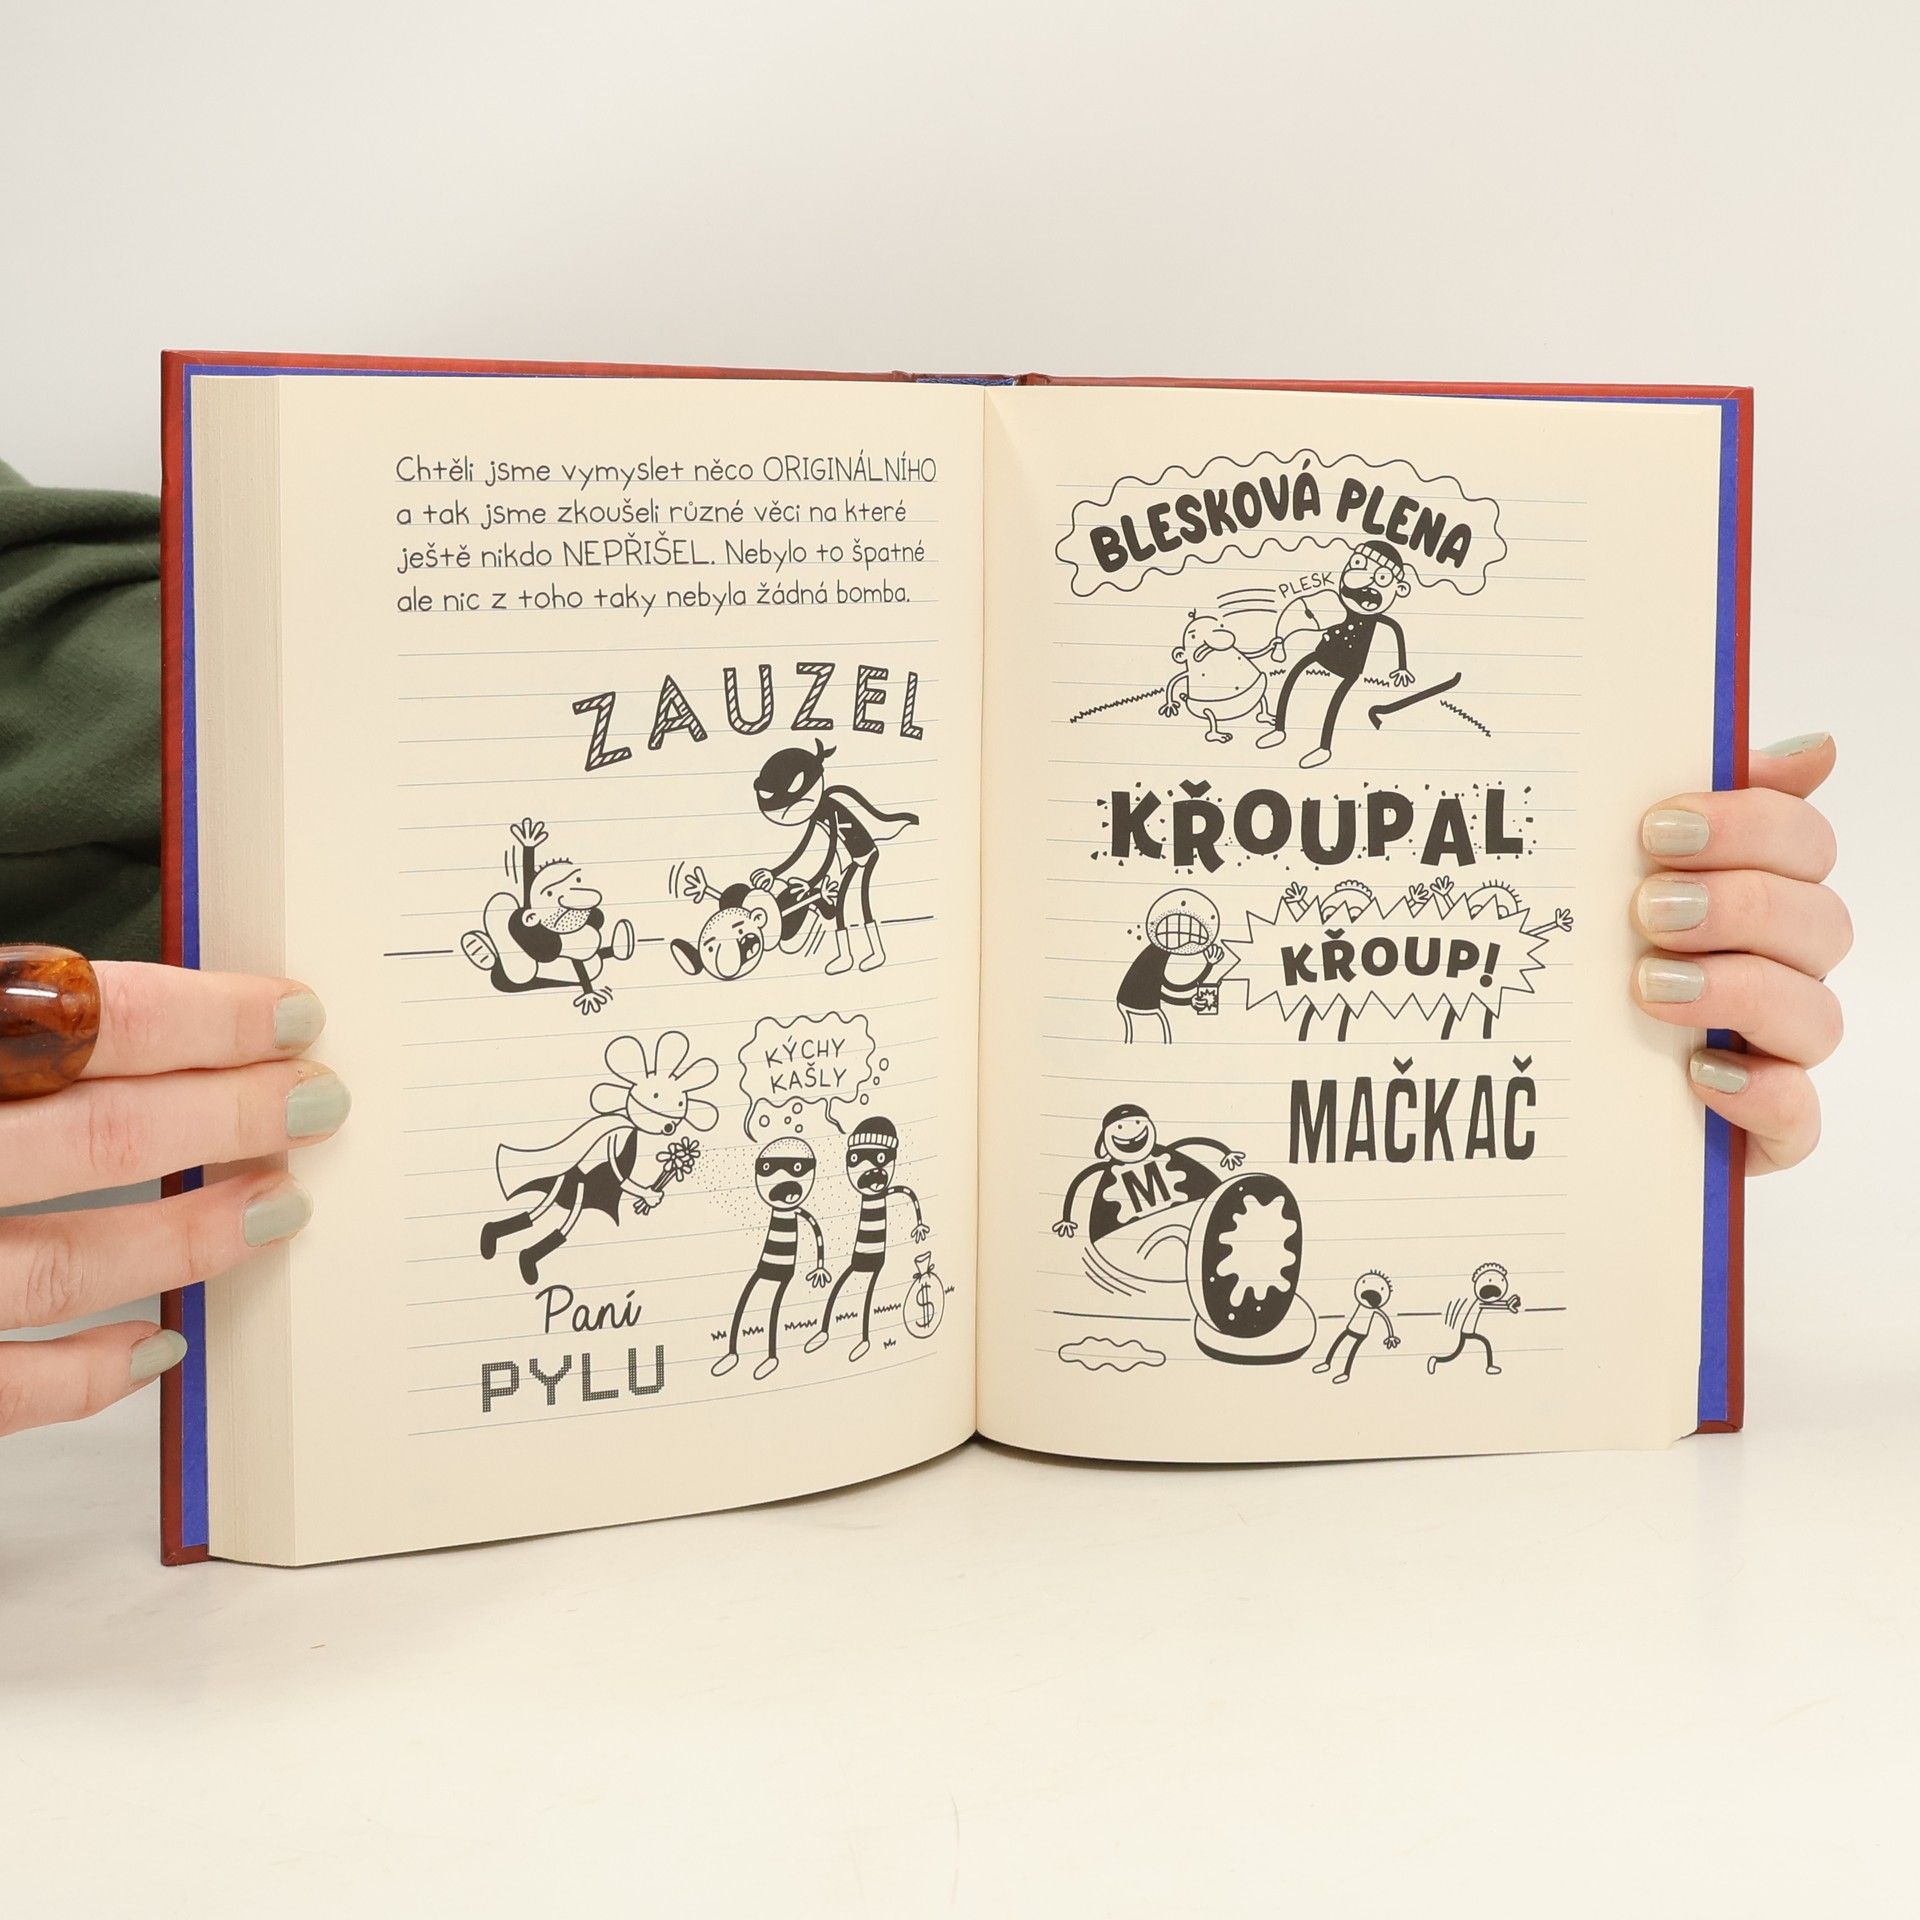 Chtěli jsme vymyslet něco ORIGINÁLNÍHO
a tak jsme zkoušeli různé věci na které
ještě nikdo NEPŘIŠEL. Nebylo to špatné
ale nic z toho taky nebyla žádná bomba.
ZAUZEL
KÝCHY
KAŠLY
$
Paní
PYLU
BLESKOVÁ PLENA
PLESK
KŘOUPAL
KŘOUP!
MAČKAČ
M